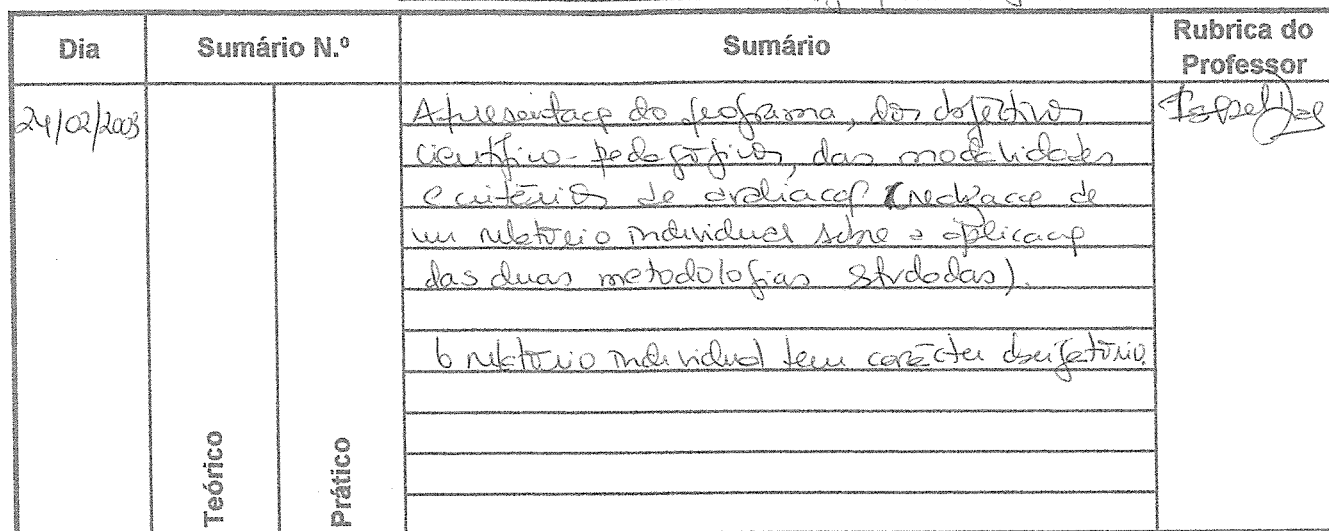 Dia Sumário N.º Sumário Rubrica do Professor
24/02/2003
Apresentação do programa, dos objectivos
científico-pedagógicos, das modalidades
e critérios de avaliação (redacção de
um relatório individual sobre a aplicação
das duas metodologias estudadas).
O relatório individual tem carácter obrigatório.
Teórico
Prático